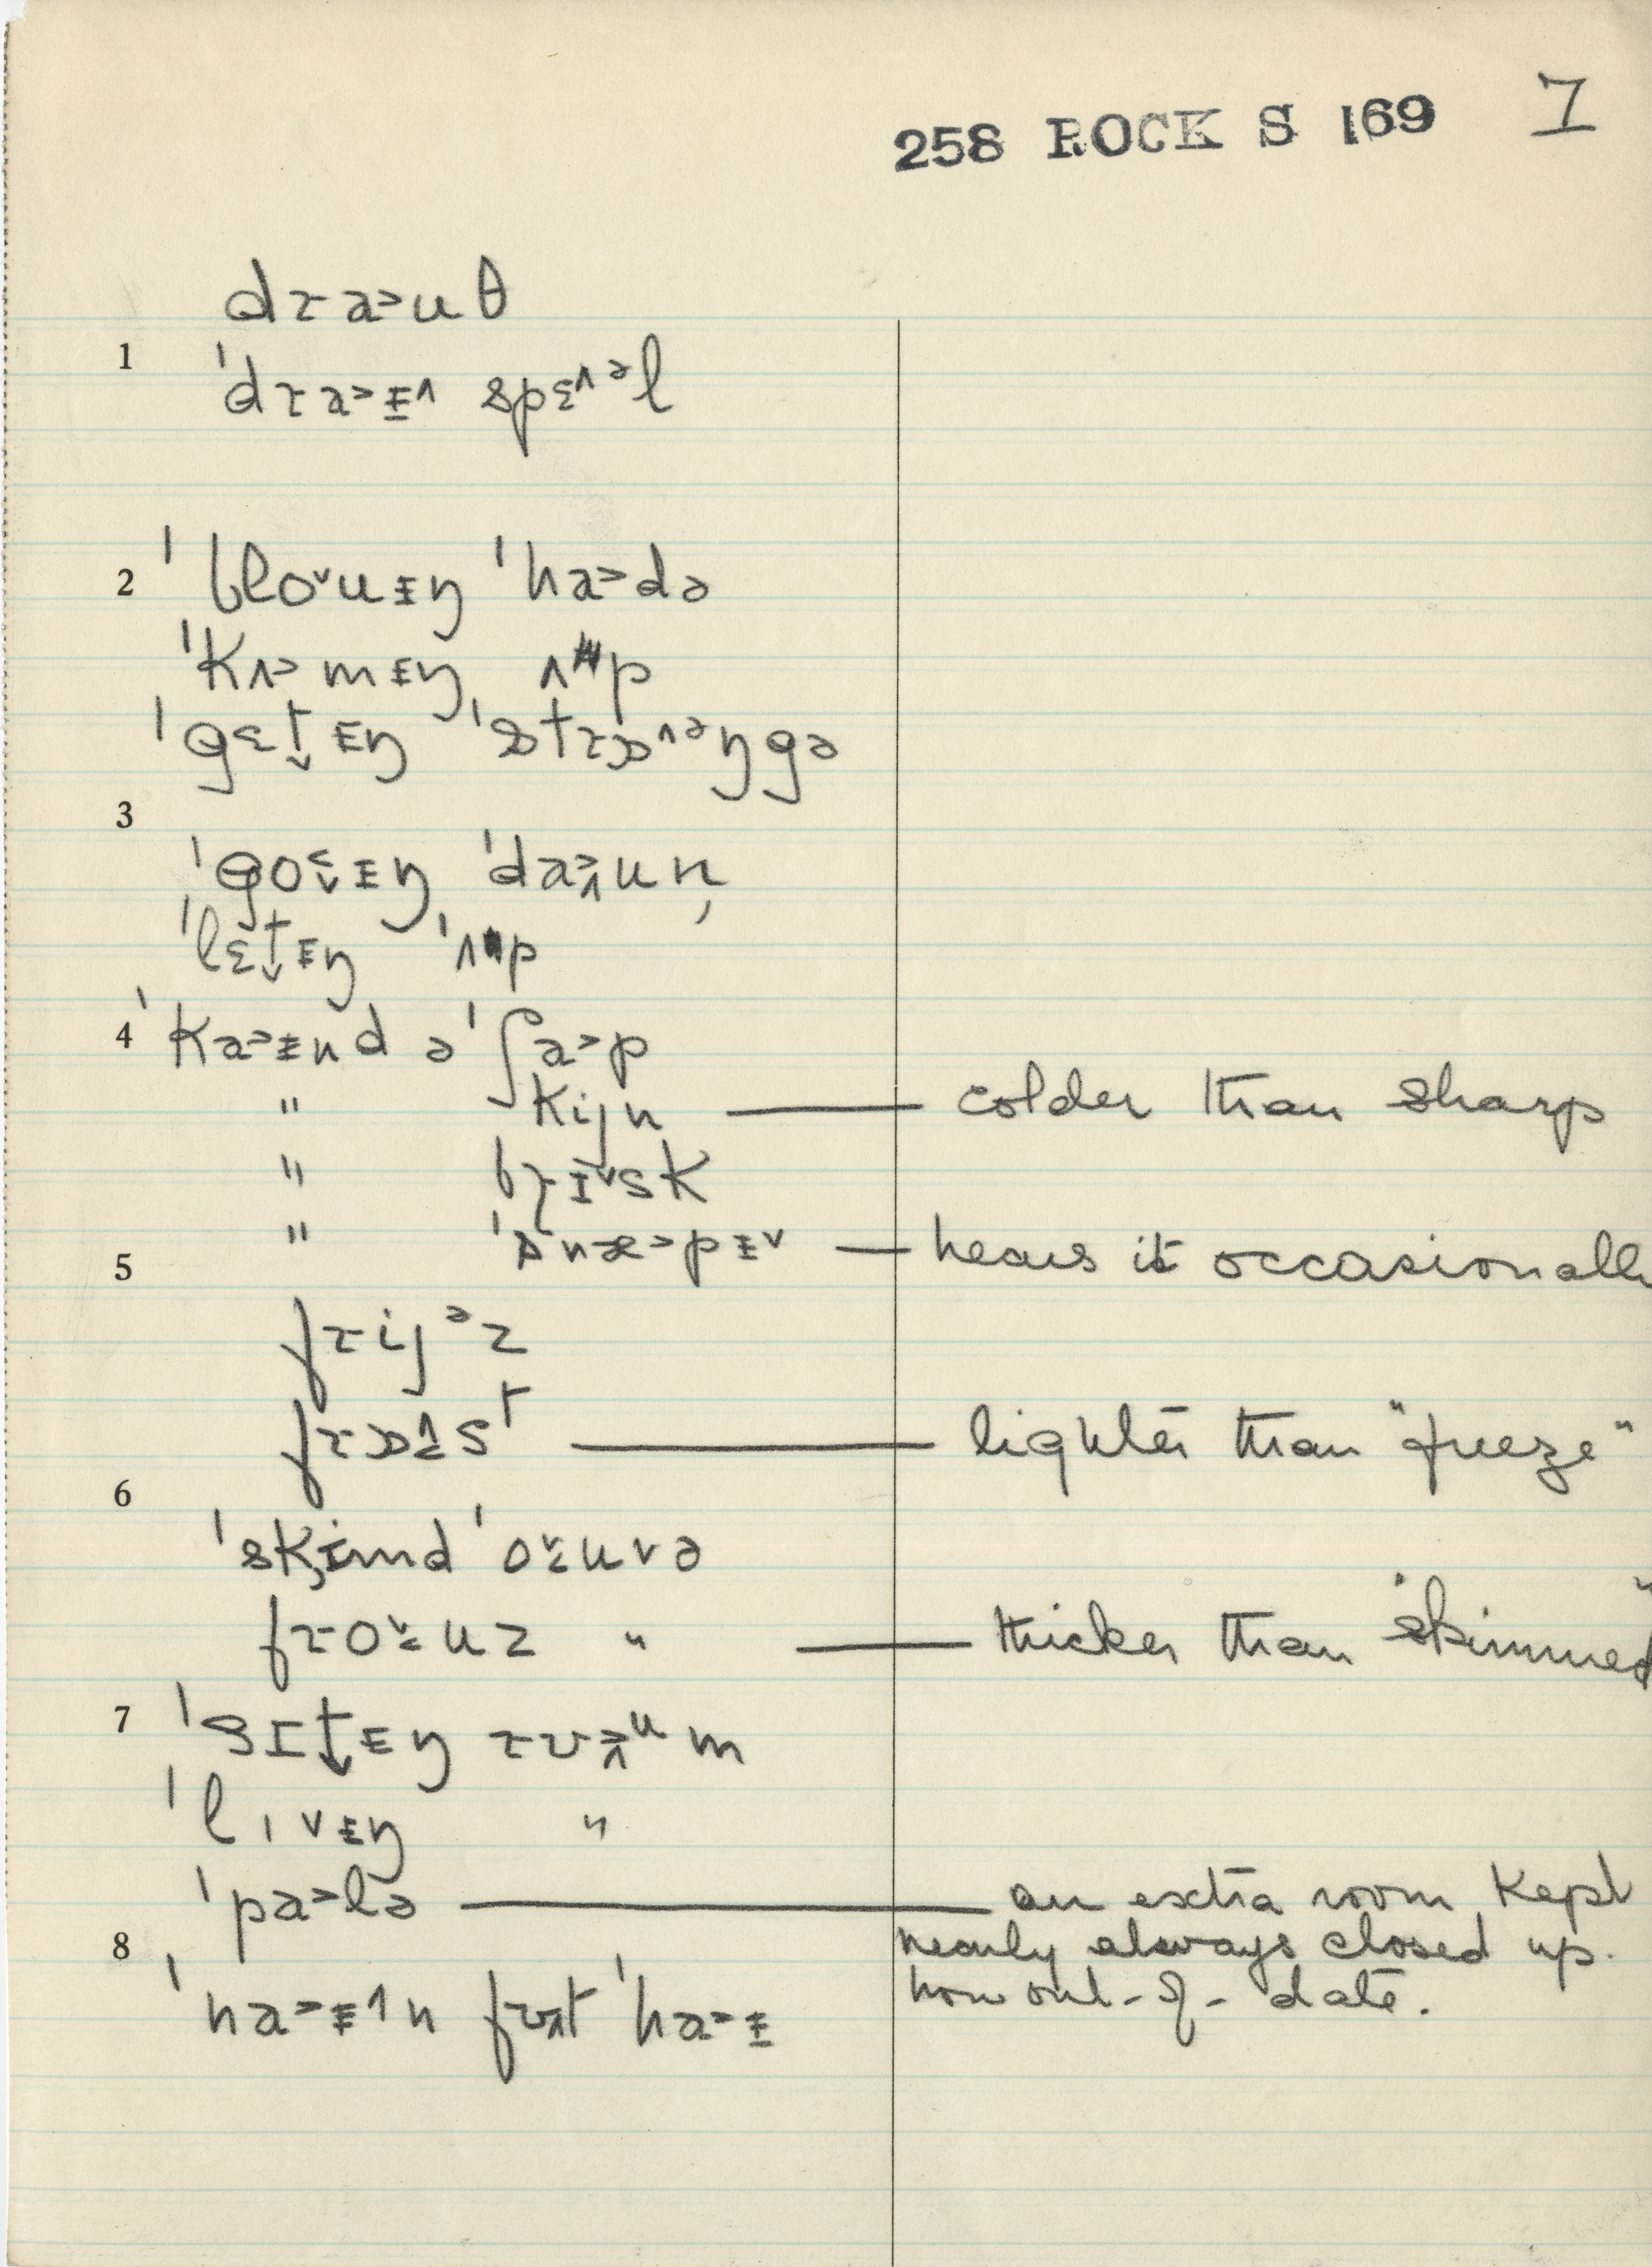 258 ROCK S 169 7
dɾa˃uθ
1
ˈdɾa˃ɨ̠˄ spɛ˄ᵊl
2 ˈbloˇuɨŋ ˈha˃də
ˈkʌ˃mɨŋ ʌp
ˈgɛt̬ɨŋ ˈstɾɒ˄ᵊŋgə
3
ˈgoɨŋ ˈda˃un
ˈlɛt̬ɨŋ ˈʌp
4 ˈka˃ɨnd ə ˈʃa˃p
" kijn — colder than sharp
" bɾɪˇsk
" ˈsnæ˃pɨˇ — hears it occasionall
5
fɾijᵊz
fɾɒst — lighter than "freeze"
6
ˈskɨmd ˈoˇuvə
fɾoˇuz " — thicker than "skimmed"
7 ˈsɪt̬ɨŋ ɾʊᵘm
ˈlɪvɨŋ "
ˈpa˃lə — an extra room kept
8 nearly always closed up.
now out-of-date.
ˈna˃ɨ˄n fʊt ˈha˃ɨ̠